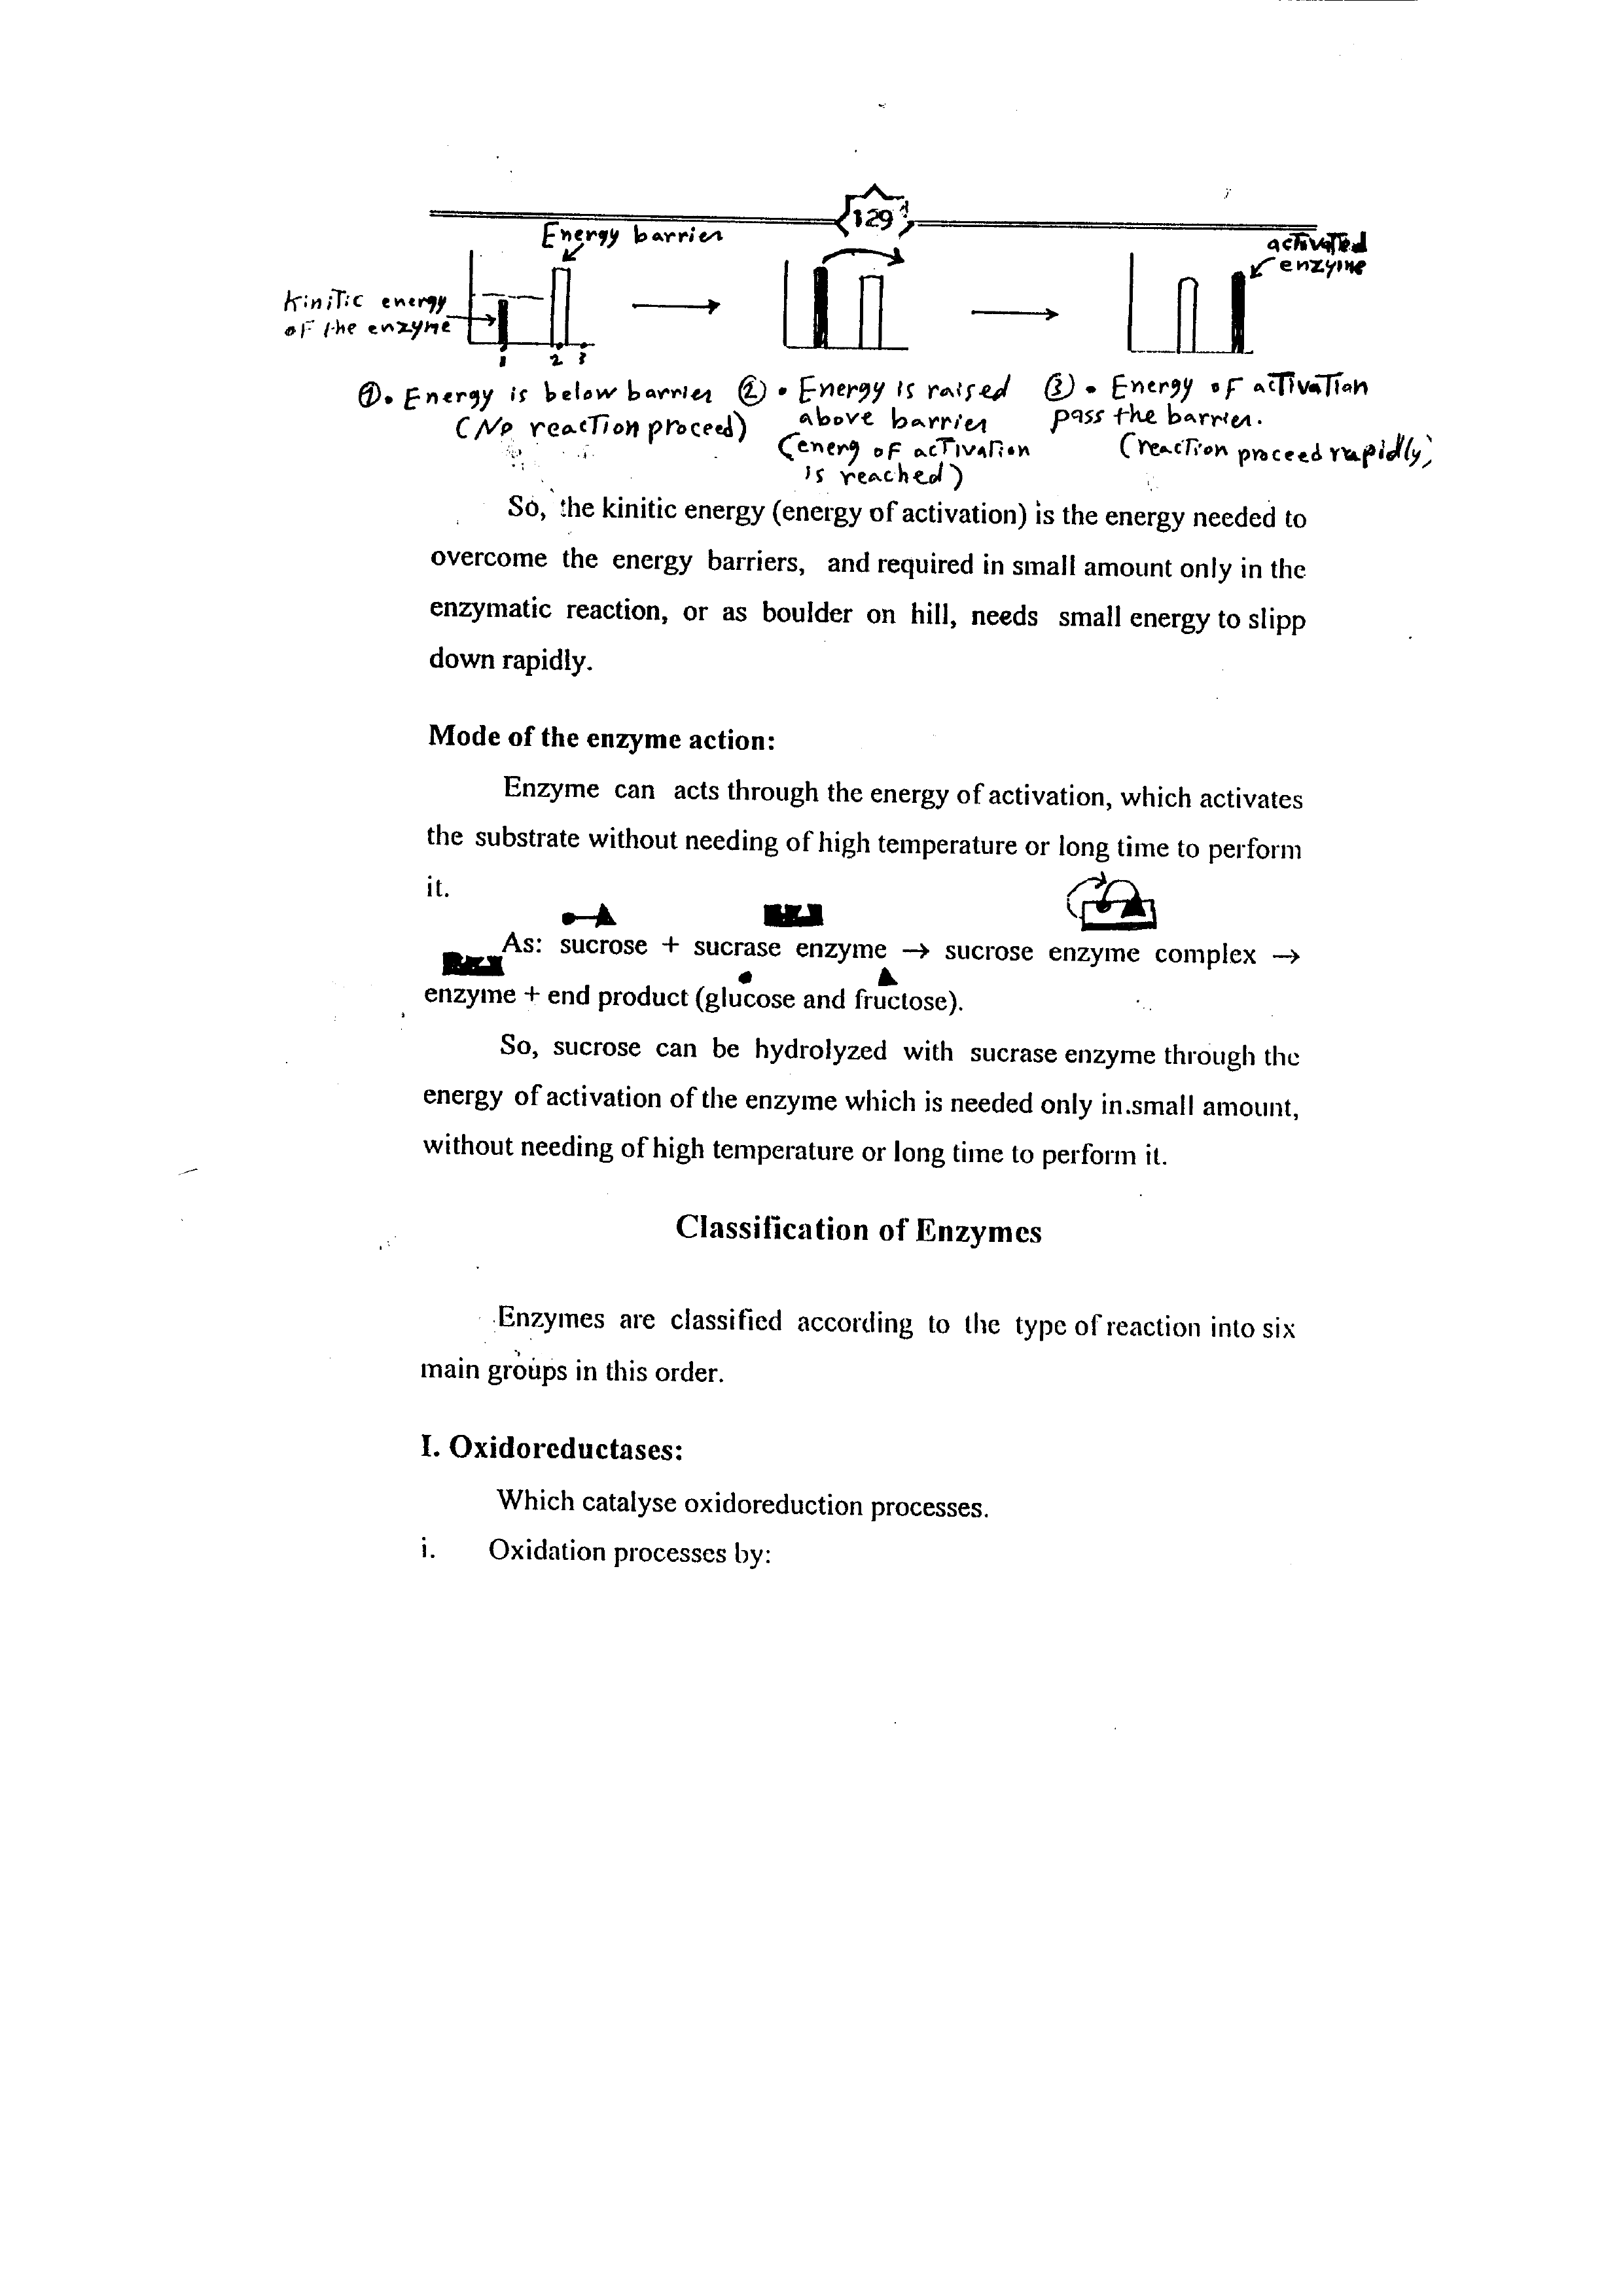 129
Energy barrier
activated
enzyme
Kinitic energy
of the enzyme
1 2 3
①. Energy is below barrier
(No reaction proceed)
②. Energy is raised
above barrier
(energ of activation
is reached)
③. Energy of activation
pass the barrier.
(reaction proceed rapidly)
So, the kinitic energy (energy of activation) is the energy needed to
overcome the energy barriers, and required in small amount only in the
enzymatic reaction, or as boulder on hill, needs small energy to slipp
down rapidly.
Mode of the enzyme action:
Enzyme can acts through the energy of activation, which activates
the substrate without needing of high temperature or long time to perform
it.
As: sucrose + sucrase enzyme → sucrose enzyme complex →
enzyme + end product (glucose and fructose).
So, sucrose can be hydrolyzed with sucrase enzyme through the
energy of activation of the enzyme which is needed only in small amount,
without needing of high temperature or long time to perform it.
Classification of Enzymes
Enzymes are classified according to the type of reaction into six
main groups in this order.
I. Oxidoreductases:
Which catalyse oxidoreduction processes.
i. Oxidation processes by: